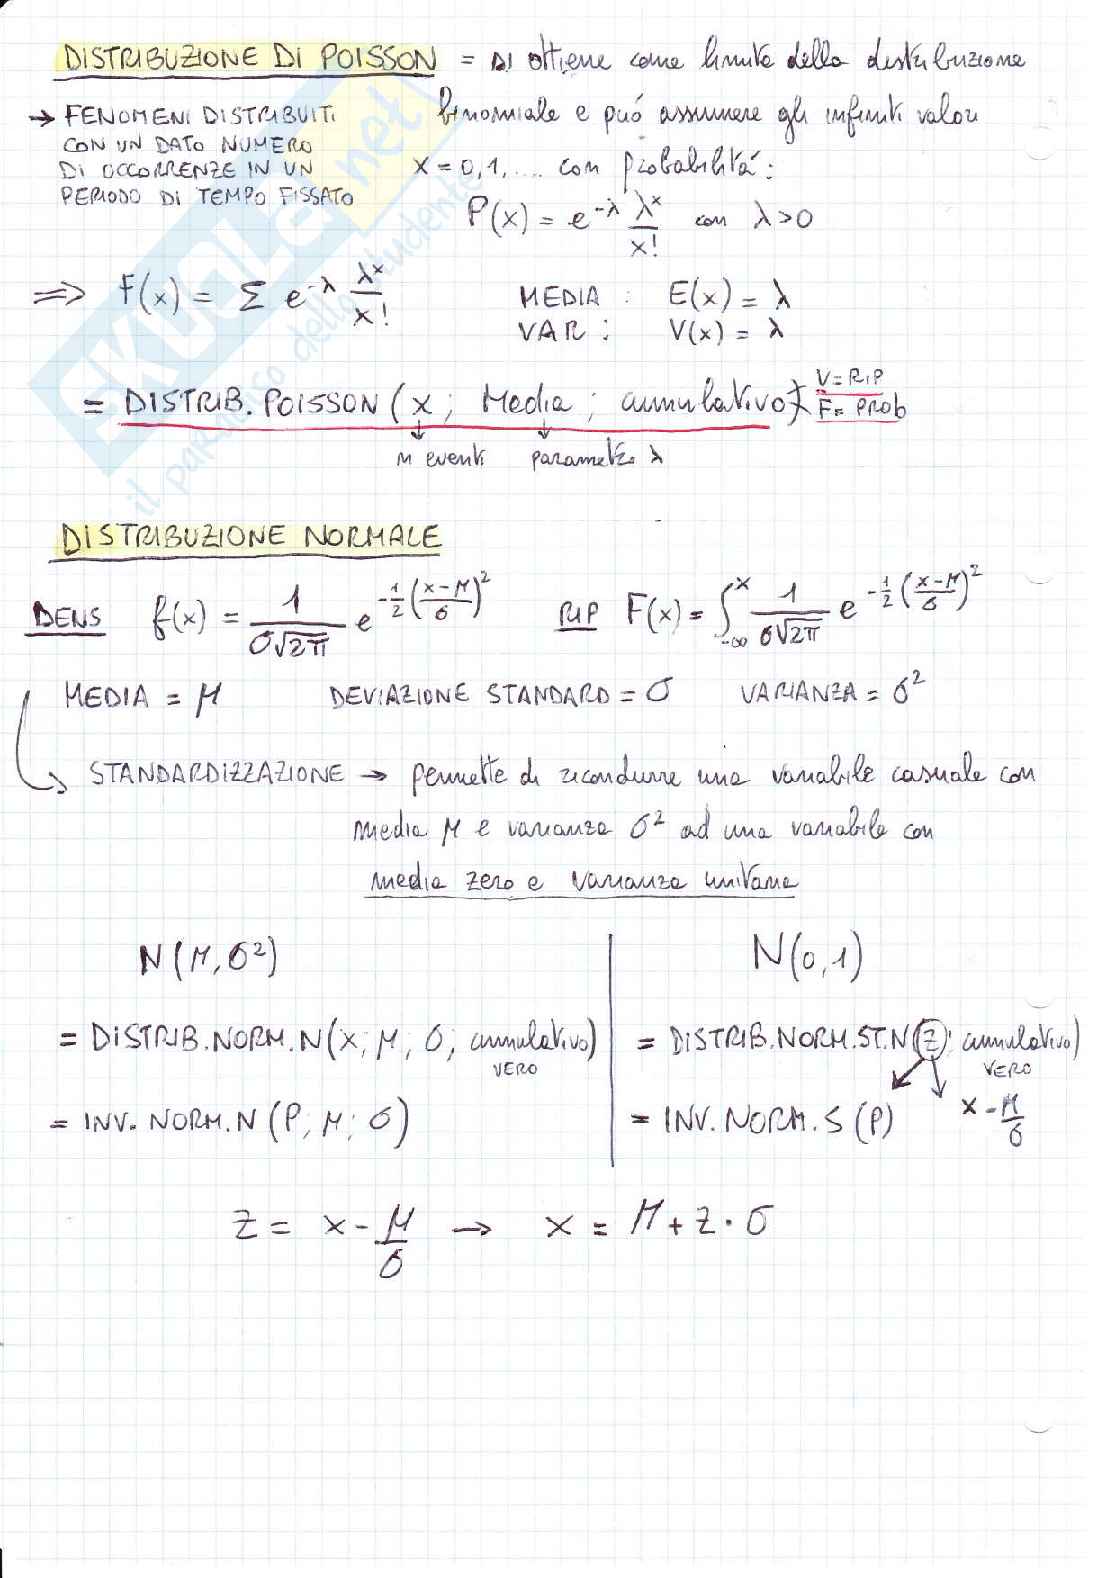 DISTRIBUZIONE DI POISSON = si ottiene come limite della distribuzione
binomiale e può assumere gli infiniti valori
x = 0,1, .... con probabilità:
P(x) = e^-λ λ^x/x! con λ>0
→ FENOMENI DISTRIBUITI
CON UN DATO NUMERO
DI OCCORRENZE IN UN
PERIODO DI TEMPO FISSATO
⇒ F(x) = Σ e^-λ λ^x/x!
MEDIA : E(x) = λ
VAR : V(x) = λ
= DISTRIB.POISSON (x ; Media ; cumulativo) V=RIP
F= PROB
n eventi parametro λ
DISTRIBUZIONE NORMALE
DENS f(x) = 1/(σ√2π) e^-1/2((x-μ)/σ)^2 RIP F(x) = ∫_-∞^x 1/(σ√2π) e^-1/2((x-μ)/σ)^2
MEDIA = μ DEVIAZIONE STANDARD = σ VARIANZA = σ²
STANDARDIZZAZIONE → permette di ricondurre una variabile casuale con
media μ e varianza σ² ad una variabile con
media zero e varianza unitaria
N(μ,σ²)
= DISTRIB.NORM.N(x; μ; σ; cumulativo)
VERO
= INV.NORM.N (P; μ; σ)
N(0,1)
= DISTRIB.NORM.ST.N(z; cumulativo)
VERO
= INV.NORM.S (P)
x - μ/σ
z = x - μ/σ → x = μ + z · σ
SKUOLA.net
il paradiso dello studente